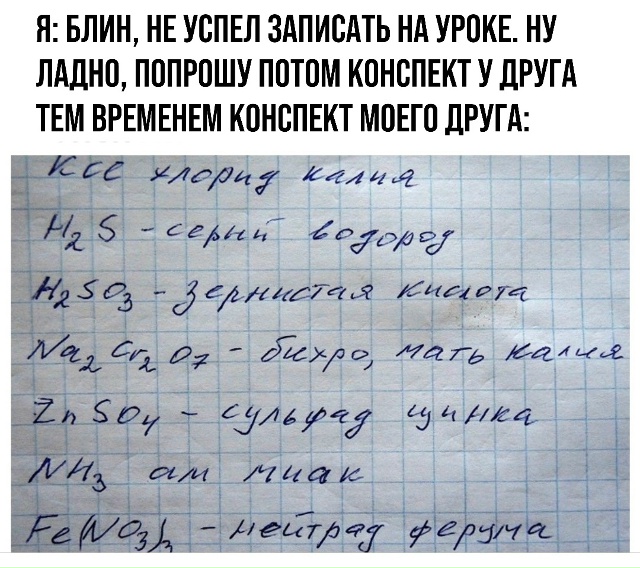 Я: БЛИН, НЕ УСПЕЛ ЗАПИСАТЬ НА УРОКЕ. НУ
ЛАДНО, ПОПРОШУ ПОТОМ КОНСПЕКТ У ДРУГА
ТЕМ ВРЕМЕНЕМ КОНСПЕКТ МОЕГО ДРУГА:
Ксе хлорид калия
H₂S - серый водород
H₂SO₃ - зернистая кислота
Na₂Cr₂O₇ - бихро, мать калия
ZnSO₄ - сульфад цинка
NH₃ ам миак
Fe(NO₃)₃ - нейтрад ферума